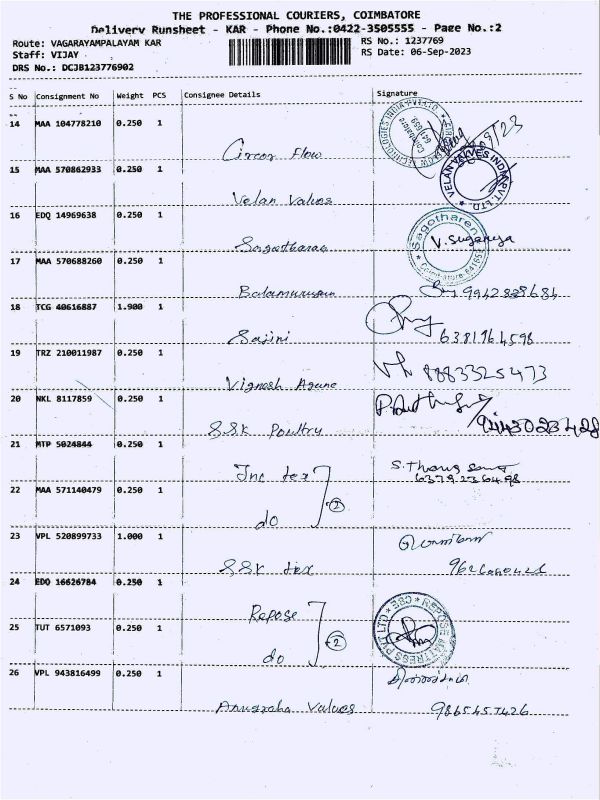 THE PROFESSIONAL COURIERS, COIMBATORE
Delivery Runsheet - KAR - Phone No.:0422-3505555 - Page No.:2
Route: VAGARAYAMPALAYAM KAR
RS No.: 1237769
Staff: VIJAY
RS Date: 06-Sep-2023
DRS No.: DCJB123776902
S No Consignment No Weight PCS Consignee Details Signature
14 MAA 104778210 0.250 1
Circor Flow
15 MAA 570862933 0.250 1
VELAN VALVES INDIA PVT. LTD.
Velan Valves
16 EDQ 14969638 0.250 1
Sagotharen
V. Suganya
17 MAA 570688260 0.250 1
Balamurugan
18 TCG 40616887 1.900 1
Sajini 6381964598
19 TRZ 210011987 0.250 1
8883325473
Vignesh Agune
20 NKL 8117859 0.250 1
SSK Poultry
21 MTP 5024844 0.250 1
Inc tex
6379236498
22 MAA 571140479 0.250 1
2
do
23 VPL 520899733 1.000 1
SSK tex
24 EDQ 16626784 0.250 1
Repose
25 TUT 6571093 0.250 1
2
do
26 VPL 943816499 0.250 1
Anugraha Valves